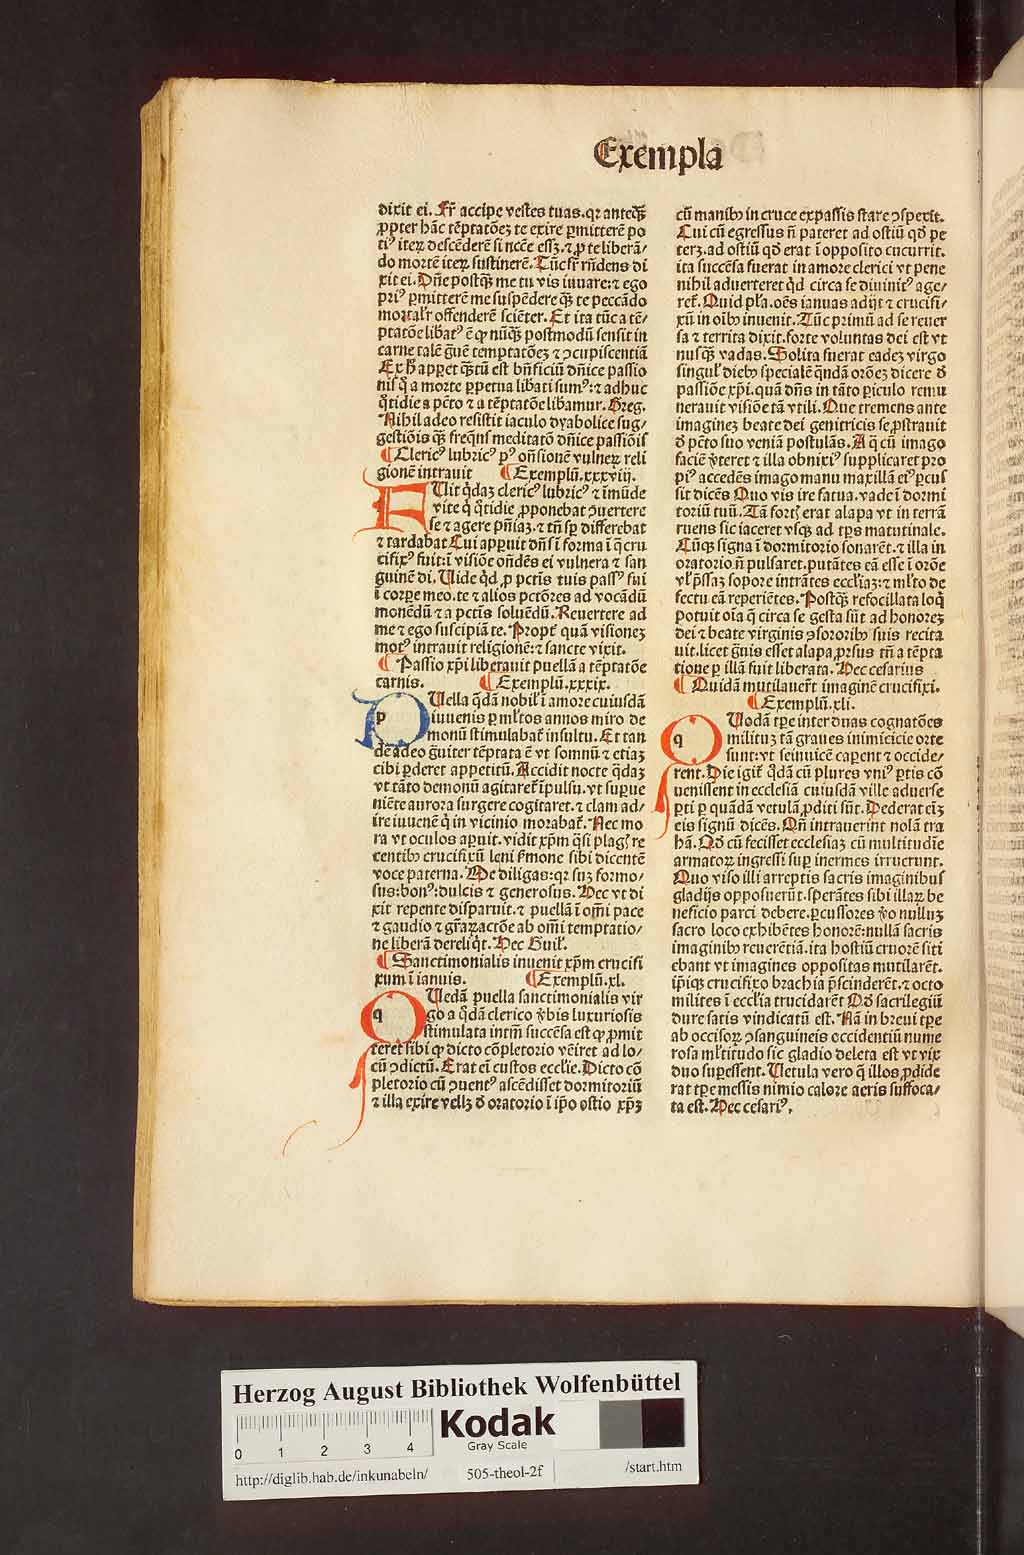 Exempla
dixit ei. Fr̃ accipe vestes tuas. qꝛ anteqᷓꝫ
ꝓpter hāc tēptatōeꝫ te exire ꝑmitterē po
tiꝰ iteꝝ descēderē si necē eſſꝫ. ⁊ ꝓ te liberā/
do mortē iteꝝ sustinerē. Tūc fr̃ rñdens di
xit ei. Dñe postqᷓꝫ me tu vis iuuare: ⁊ ego
priꝰ ꝑmitterē me suspēdere qᷓꝫ te peccādo
mortalr̃ offenderē sciēter. Et ita tūc a tē/
ptatōe libatꝰ ē ꝙ nūqᷓꝫ postmodū sensit in
carne talē g̃uē temptatōeꝫ ⁊ ↄcupiscentiā
Ex h̃ apꝑet qᷓꝫtū est bñficiū dñice passio
nis q̃ a morte ꝑpetua libati sumꝰ: ⁊ adhuc
q̃tidie a pctō ⁊ a tēptatōe libamur. Greg.
Nihil adeo resistit iaculo dyabolice sug/
gestiōis qᷓꝫ freq̃ns meditatō dñice passiōis
¶ Clericꝰ lubricꝰ pꝰ oñsionē vulneꝝ reli
gionē intrauit ¶ Exemplū. xxxviij.
FUit q̃daꝫ clericꝰ lubricꝰ ⁊ īmūde
vite q̃ q̃tidie ꝓponebat ↄuertere
se ⁊ agere pñiaꝫ. ⁊ tñ sp̃ differebat
⁊ tardabat Cui apꝑuit dñs ī forma ī q̃ cru
cifixꝰ fuit: ī visiōe oñdēs ei vulnera ⁊ san
guinē di. Uide q̃d ꝓ pctīs tuis passꝰ sui
ī corꝑe meo. te ⁊ alios pctōres ad vocādū
monēdū ⁊ a pctīs soluēdū. Reuertere ad
me ⁊ ego suscipiā te. Propt̃ quā visioneꝫ
motꝰ intrauit religionē: ⁊ sancte vixit.
¶ Passio xp̃i liberauit puellā a tēptatōe
carnis. ¶ Exemplū. xxxix.
pUella q̃dā nobil̃ ī amore cuiusdā
iuuenis ꝑ ml̃tos annos miro de
monū stimulabat̃ insultu. Et tan
dē adeo g̃uiter tēptata ē vt somnū ⁊ etiaꝫ
cibi ꝑderet appetitū. Accidit nocte q̃daꝫ
vt tāto demonū agitaret̃ īpulsu. vt suꝑue
niēte aurora surgere cogitaret. ⁊ clam ad/
ire iuuenē q̃ in vicinio morabat̃. Nec mo
ra vt oculos aꝑuit. vidit xp̃m q̃si plagꝭ re
centibꝰ crucifixū leni ẜmone sibi dicentē
voce paterna. Me diligas: qꝛ suꝫ formo/
sus: bonꝰ: dulcis ⁊ generosus. Hec vt di
xit repente disparuit. ⁊ puellā ī om̃i pace
⁊ gaudio ⁊ gr̃aꝝ actōe ab om̃i temptatio/
ne liberā dereliq̃t. Hec Guil̃.
¶ Sanctimonialis inuenit xp̃m crucifi
xum ī ianuis. ¶ Exemplū. xl.
qUedā puella sanctimonialis vir
go a q̃dā clerico v̾bis luxuriosis
stimulata intm̃ succēsa est ꝙ ꝓmit
teret sibi ꝙ dicto cōpletorio vēiret ad lo/
cū ↄdictū. Erat ei custos eccl̃ie. Dicto cō
pletorio cū ↄuentꝰ ascēdisset dormitoriū
⁊ illa exire vellꝫ d̃ oratorio ī ip̃o ostio xp̃ꝫ
cū manibꝰ in cruce expassis stare ↄspexit.
Cui cū egressus ñ pateret ad ostiū qd̃ pe
terꝫ. ad ostiū qd̃ erat ī opposito cucurrit.
ita succēsa fuerat in amore clerici vt pene
nihil aduerteret q̃d circa se diuinitꝰ age/
ret̃. Quid pl̃a. oēs ianuas adijt ⁊ crucifi/
xū in oībꝰ inuenit. Tūc primū ad se reuer
sa ⁊ territa dixit. forte voluntas dei est vt
nusqᷓꝫ vadas. Solita fuerat eadeꝫ virgo
singul̃ diebꝰ specialē q̃ndā orōeꝫ dicere d̃
passiōe xp̃i. quā dñs in tāto ꝑiculo remu
nerauit visiōe tā vtili. Que tremens ante
imagineꝫ beate dei genitricis se ꝓstrauit
d̃ pctō suo veniā postulās. A q̃ cū imago
faciē v̾teret ⁊ illa obnixiꝰ supplicaret pro
piꝰ accedēs imago manu maxillā eiꝰ ꝑcus
sit dicēs Quo vis ire fatua. vade ī dormi
toriū tuū. Tā fortꝭ erat alapa vt in terrā
ruens sic iaceret vsqꝫ ad tp̃s matutinale.
Cūqꝫ signa ī dormitorio sonarēt. ⁊ illa in
oratorio ñ pulsaret. putātes eā esse ī orōe
vl̃ p̃ssaꝫ sopore intrātes eccl̃iaꝫ: ⁊ ml̃to de
fectu eā reperiētes. Postqᷓꝫ refocillata loq̃
potuit oīa q̃ circa se gesta sūt ad honoreꝫ
dei ⁊ beate virginis ↄsororibꝰ suis recita
uit. licet g̃uis esset alapa, ꝓrsus tñ a tēpta
tione ꝑ illā fuit liberata. Hec cesarius
¶ Quidā mutilauert̃ imaginē crucifixi.
¶ Exemplū. xli.
qUodā tꝑe inter duas cognatōes
milituꝫ tā graues inimicicie orte
sunt: vt seinuicē caꝑent ⁊ occide/
rent. Die igit̃ q̃dā cū plures vniꝰ ꝑtis cō
uenissent in ecclesiā cuiusdā ville aduerse
ꝑti ꝑ quādā vetulā ꝓditi sūt. Dederat eīꝫ
eis signū dicēs. Qñ intrauerint nolā tra
hā. Qd̃ cū fecisset ecclesiaꝫ cū multitudīe
armatoꝝ ingressi suꝑ inermes irruerunt.
Quo viso illi arreptis sacris imaginibus
gladijs opposuerūt. sperātes sibi illaꝝ be
neficio parci debere. ꝑcussores v̾o nulluꝫ
sacro loco exhibētes honorē: nullā sacris
imaginibꝰ reuerētiā. ita hostiū cruorē siti
ebant vt imagines oppositas mutilarēt.
ip̃iqꝫ crucifixo brachia p̃scinderēt. ⁊ octo
milites ī eccl̃ia trucidarēt Qd̃ sacrilegiū
dure satis vindicatū est. Nā in breui tꝑe
ab occisoꝝ ↄsanguineis occidentiū nume
rosa ml̃titudo sic gladio deleta est vt vix
duo suꝑessent. Uetula vero q̃ illos ꝓdide
rat tꝑe messis nimio calore aeris suffoca/
ta est. Hec cesariꝰ.
Herzog August Bibliothek Wolfenbüttel
0 1 2 3 4
Kodak
Gray Scale
http://diglib.hab.de/inkunabeln/ 505-theol-2f /start.htm